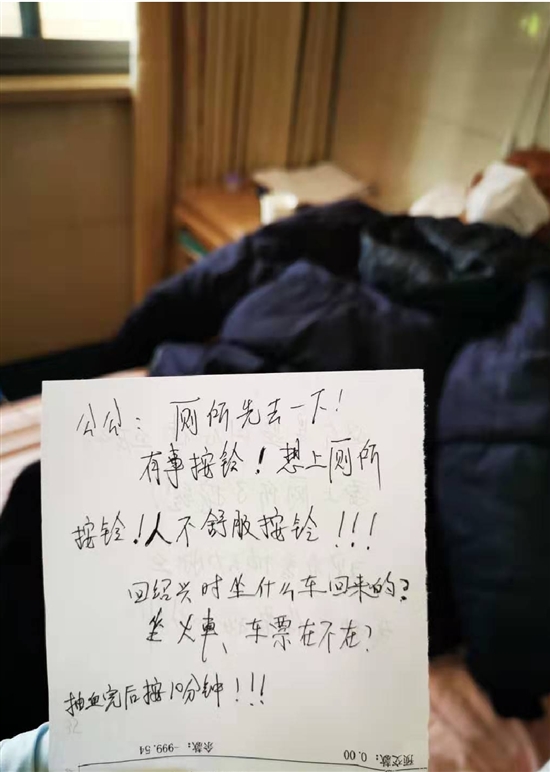 公公：厕所先去一下！
有事按铃！想上厕所
按铃！人不舒服按铃！！！
回绍兴时坐什么车回来的？
坐火車、车票在不在？
抽血完后按10分钟！！！
预交款：0.00 余款：-999.54